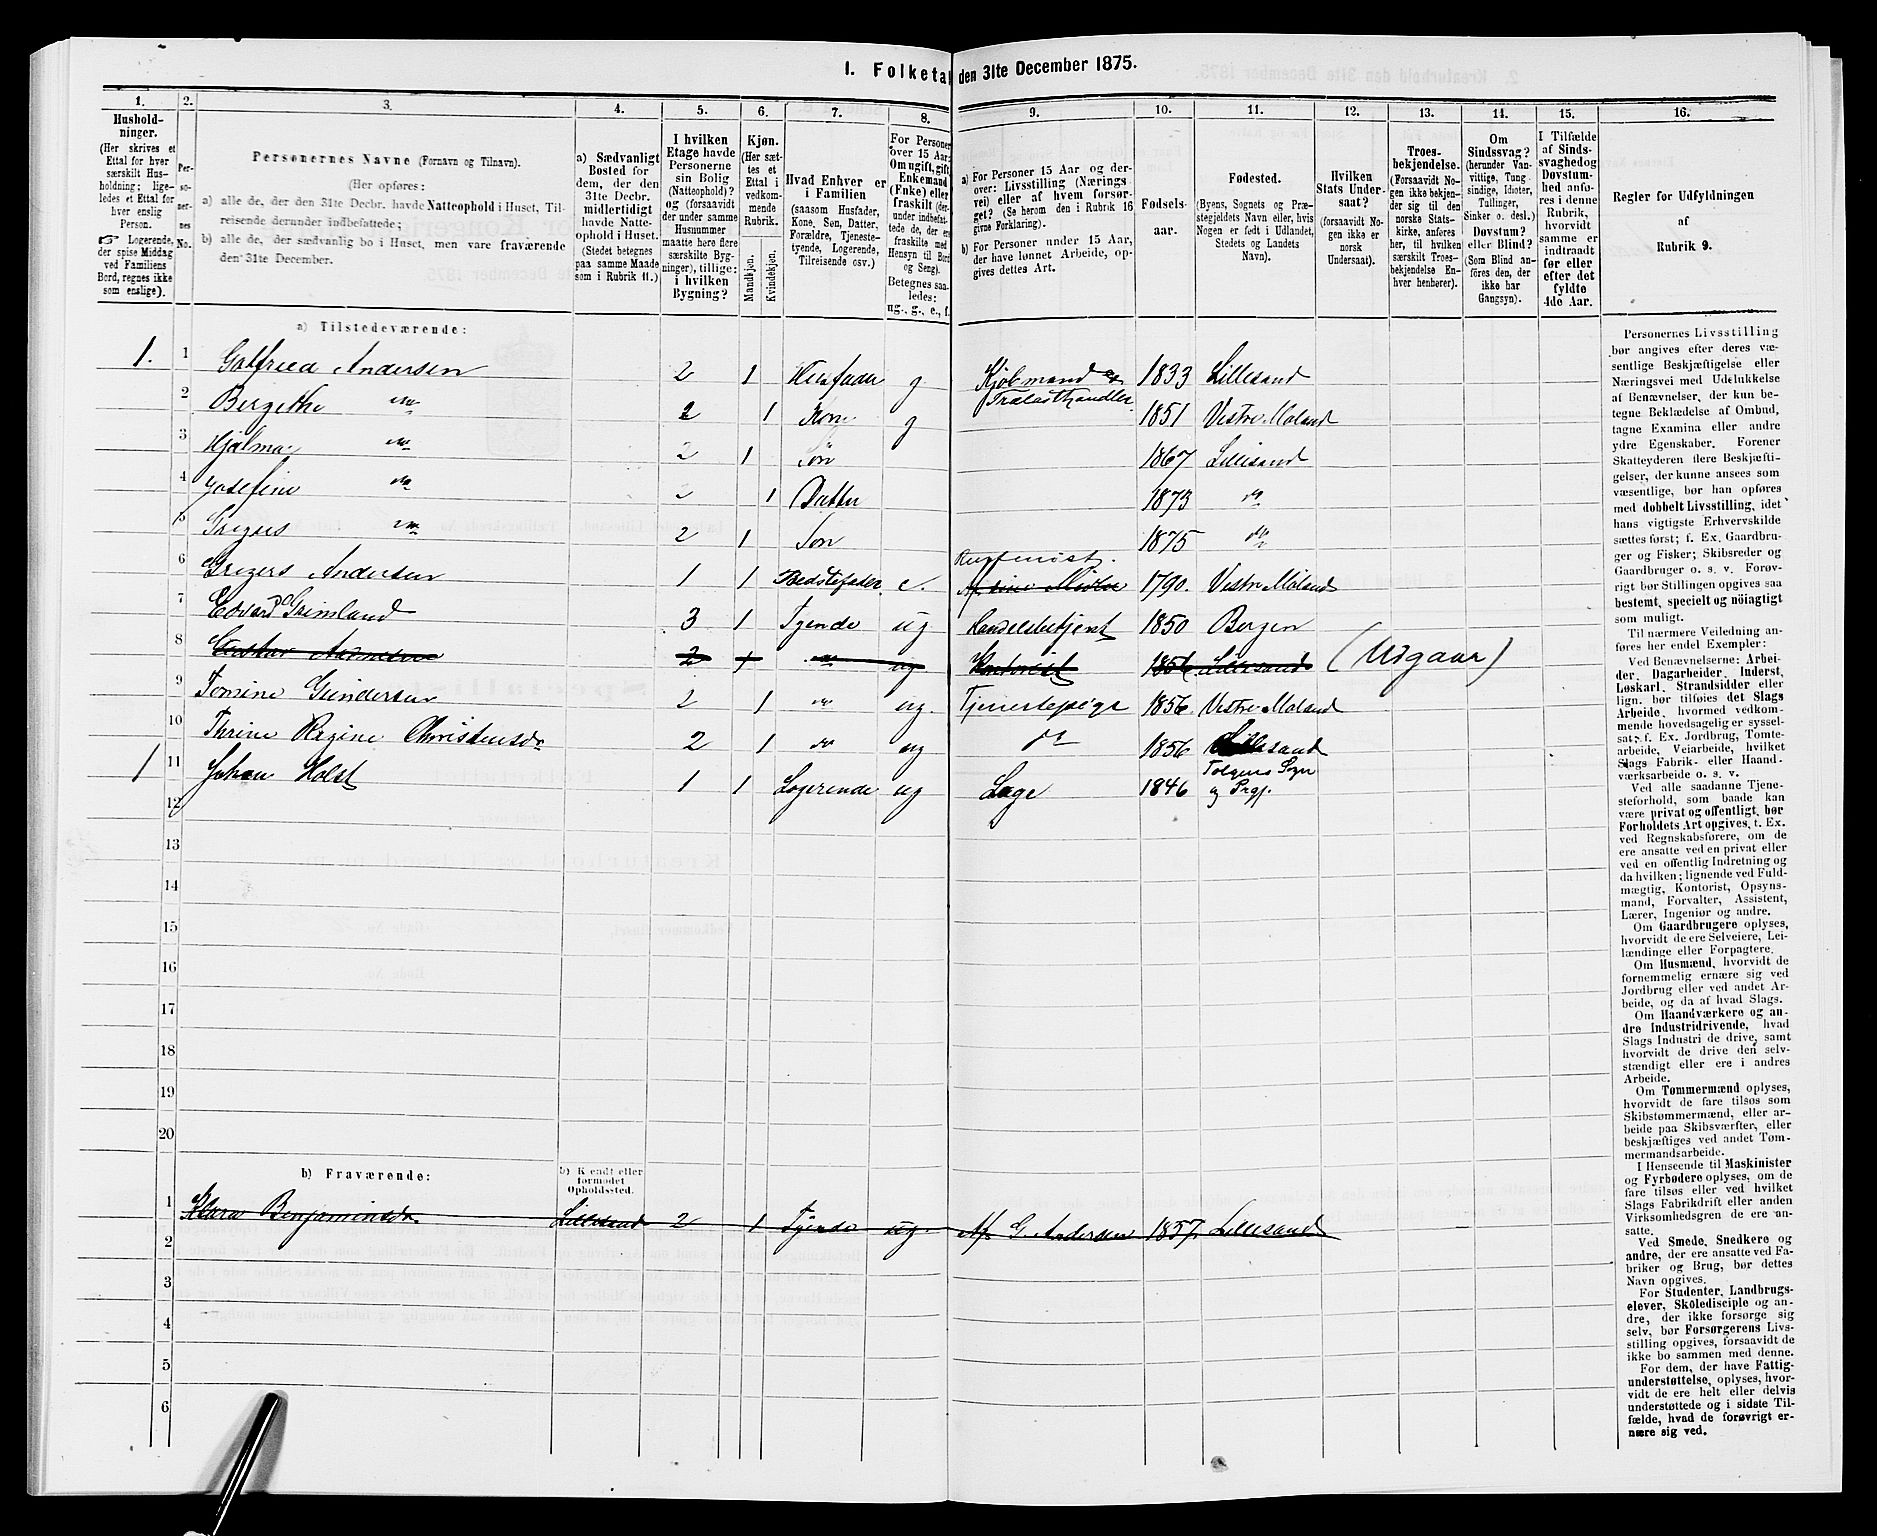 1. Folketal den 31te December 1875.
1. 2. 3. 4. 5. 6. 7. 8. 9. 10. 11. 12. 13. 14. 15. 16.
Hushold-
ninger.
(Her skrives et
Ettal for hver
særskilt Hus-
holdning; lige-
ledes et Ettal for
hver enslig
Person.
☞ Logerende,
der spise Middag
ved Familiens
Bord, regnes ikke
som enslige).
Per-
so-
ner-
nes
No.
Personernes Navne (Fornavn og Tilnavn).
(Her opføres:
a) alle de, der den 31te Decbr. havde Natteophold i Huset, Til-
reisende derunder indbefattede;
b) alle de, der sædvanlig bo i Huset, men vare fraværende
den 31te December.
a) Sædvanligt
Bosted for
dem, der den
31te Decbr.
midlertidigt
havde Natte-
ophold i Huset.
(Stedet betegnes
paa samme Maade
som i Rubrik 11.)
I hvilken
Etage havde
Personerne
sin Bolig
(Natteophold)?
og (forsaavidt
der under samme
Husnummer
maatte høre flere
særskilte Byg-
ninger), tillige:
i hvilken
Bygning?
Kjøn.
(Her sæt-
tes et
Ettal i
vedkom-
mende
Rubrik.
Mandkjøn.
Kvindekjøn.
Hvad Enhver er
i Familien
(saasom Husfader,
Kone, Søn, Datter,
Forældre, Tjeneste-
tyende, Logerende,
Tilreisende osv.)
For Personer
over 15 Aar:
Om ugift, gift,
Enkemand
(Enke) eller
fraskilt (der-
under indbefat-
tede de, der ere
fraskilte med
Hensyn til Bord
og Seng).
Betegnes saa-
ledes:
ug., g., e., f.
a) For Personer 15 Aar og der-
over: Livsstilling (Nærings-
vei) eller af hvem forsør-
get? (Se herom den i Rubrik 16
givne Forklaring).
b) For Personer under 15 Aar,
der have lønnet Arbeide, op-
gives dettes Art.
Fødsels-
aar.
Fødested.
(Byens, Sognets og Præ-
stegjeldets Navn eller, hvis
Nogen er født i Udlandet,
Stedets og Landets
Navn).
Hvilken
Stats Under-
saat?
(forsaavidt No-
gen ikke er
norsk
Undersaat).
Troes-
bekjendelse.
(Forsaavidt No-
gen ikke bekjen-
der sig til den
norske Stats-
kirke, anføres
her, til hvilken
særskilt Troes-
bekjendelse En-
hver henhører).
Om
Sindssvag?
(herunder Van-
vittige, Tung-
sindige, Idioter,
Tullinger,
Sinker o. desl.)
Døvstum?
eller Blind?
(Som Blind an-
føres den, der
ikke har
Gangsyn).
I Tilfælde
af Sinds-
svaghed og
Døvstum-
hed anfø-
res i denne
Rubrik,
hvorvidt
samme er
indtraadt
før eller
efter det
fyldte
4de Aar.
Regler for Udfyldningen
af
Rubrik 9.
a) Tilstedeværende:
1. 1 Gotfried Andersen 2 1 Husfader g. Kjøbmand og Trælasthandler 1833 Lillesand
2 Bergithe do 2 1 Kone g 1851 Vestre Moland
3 Hjalmar do 2 1 Søn 1867 Lillesand
4 Josefine do 2 1 Datter 1873 do
5 Gregers do 2 1 Søn 1875 do
6 Gregers Andersen 1 1 Bedstefader e. 1790. Vestre Moland
7 Edvard Grimland 3 1 Tyende ug Handelsbetjent 1850 Bergen
8 2 1 do ug Kontorist 1856 Lillesand (Udgaar)
9 Tomine Gundersen 2 1 do ug. Tjenestepige 1856. Vestre Moland
10 Thrine Regine Christensdr 2 1 do ug do 1856 Lillesand
1 11 Johan Holst 1 1 Logerende ug Læge 1846 Tolgens Sogn
og Prgj.
12
13
14
15
16
17
18
19
20
b) Fraværende:
b) Kjendt eller
formodet
Opholdssted.
1 Klara Benjaminsdr. Lillesand 2 1 Tyende ug. Af G. Andersen 1857. Lillesand
2
3
4
5
6
Personernes Livsstilling
bør angives efter deres væ-
sentlige Beskjæftigelse eller
Næringsvei med Udelukkelse
af Benævnelser, der kun be-
tegne Beklædelse af Ombud,
tagne Examina eller andre
ydre Egenskaber. Forener
Skatteyderen flere Beskjæfti-
gelser, der kunne ansees som
væsentlige, bør han opføres
med dobbelt Livsstilling, idet
hans vigtigste Erhvervskilde
sættes først; f. Ex. Gaardbru-
ger og Fisker; Skibsreder og
Gaardbruger o. s. v. Forøv-
rigt bør Stillingen opgives saa
bestemt, specielt og nøiagtigt
som muligt.
Til nærmere Veiledning an-
føres her endel Exempler:
Ved Benævnelserne: Arbei-
der, Dagarbeider, Inderst,
Løskarl, Strandsidder eller
lign. bør tilføies det Slags
Arbeide, hvormed vedkom-
mende hovedsagelig er syssel-
sat; f. Ex. Jordbrug, Tomte-
arbeide, Veiarbeide, hvilket
Slags Fabrik- eller Haand-
værksarbeide o. s. v.
Ved alle saadanne Tjene-
steforhold, som baade kan
være privat og offentligt, bør
Forholdets Art opgives, t. Ex.
ved Regnskabsførere, om de
ere ansatte ved en privat eller
ved en offentlig Indretning og
da hvilken; lignende ved Fuld-
mægtig, Kontorist, Opsyns-
mand, Forvalter, Assistent,
Lærer, Ingeniør og andre.
Om Gaardbrugere oplyses,
hvorvidt de ere Selveiere, Lei-
lændinge eller Forpagtere.
Om Husmænd, hvorvidt de
fornemmelig ernære sig ved
Jordbrug eller ved andet Ar-
beide, og da af hvad Slags.
Om Haandværkere og an-
dre Industridrivende, hvad
Slags Industri de drive, samt
hvorvidt de drive den selv-
stændigt eller ere i andres
Arbeide.
Om Tømmermænd oplyses,
hvorvidt de fare tilsøs som
Skibstømmermænd, eller ar-
beide paa Skibsværfter, eller
beskjæftiges ved andet Tøm-
mermandsarbeide.
I Henseende til Maskinister
og Fyrbødere oplyses, om de
fare tilsøs eller ved hvilket
Slags Fabrikdrift eller anden
Virksomhedsgren de ere an-
satte.
Ved Smede, Snedkere og
andre, der ere ansatte ved Fa-
briker og Brug, bør dettes
Navn opgives.
For Studenter, Landbrugs-
elever, Skoledisciple og an-
dre, der ikke forsørge sig
selv, bør Forsørgerens Livs-
stilling opgives, forsaavidt de
ikke bo sammen med denne.
For dem, der have Fattig-
understøttelse, oplyses, hvor-
vidt de ere helt eller delvis
understøttede og i sidste Til-
fælde, hvad de forøvrigt er-
nære sig ved.